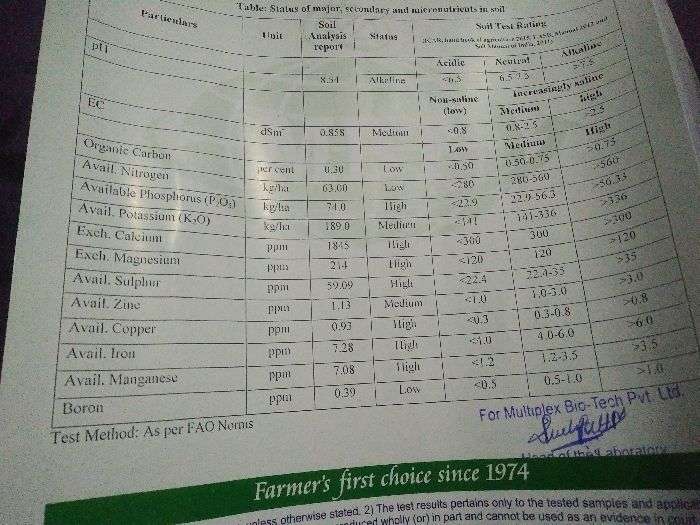 Table: Status of major, secondary and micronutrients in soil
Particulars Unit Soil Analysis report Status Soil Test Rating
Acidic Neutral Alkaline
pH 8.54 Alkaline <6.5 6.5-7.5 >7.5
Non-saline (low) Increasingly saline
Medium high
EC dSm 0.858 Medium <0.8 0.8-2.5 >2.5
Low Medium High
Organic Carbon per cent 0.30 Low <0.50 0.50-0.75 >0.75
Avail. Nitrogen kg/ha 63.00 Low <280 280-560 >560
Available Phosphorus (P₂O₅) kg/ha 74.0 High <22.9 22.9-56.3 >56.33
Avail. Potassium (K₂O) kg/ha 189.0 Medium <141 141-336 >336
Exch. Calcium ppm 1845 High <300 300 >300
Exch. Magnesium ppm 214 High <120 120 >120
Avail. Sulphur ppm 59.09 High <22.4 22.4-35 >35
Avail. Zinc ppm 1.13 Medium <1.0 1.0-3.0 >3.0
Avail. Copper ppm 0.93 High <0.3 0.3-0.8 >0.8
Avail. Iron ppm 7.28 High <4.0 4.0-6.0 >6.0
Avail. Manganese ppm 7.08 High <1.2 1.2-3.5 >3.5
Boron ppm 0.39 Low <0.5 0.5-1.0 >1.0
Test Method: As per FAO Norms
For Multiplex Bio-Tech Pvt. Ltd.
Head of the Laboratory
Farmer's first choice since 1974
otherwise stated. 2) The test results pertains only to the tested samples and
wholly (or) in part and cannot be used as an evidence in